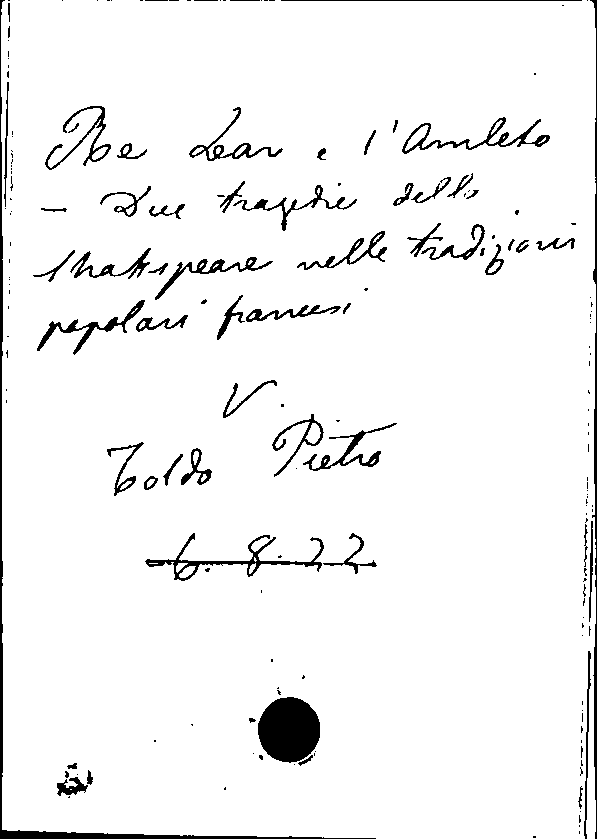 Re Lear e l'Amleto
- Due tragedie dello
Shakspeare nelle tradizioni
popolari francesi
V.
Toldo Pietro
6. 8. 22